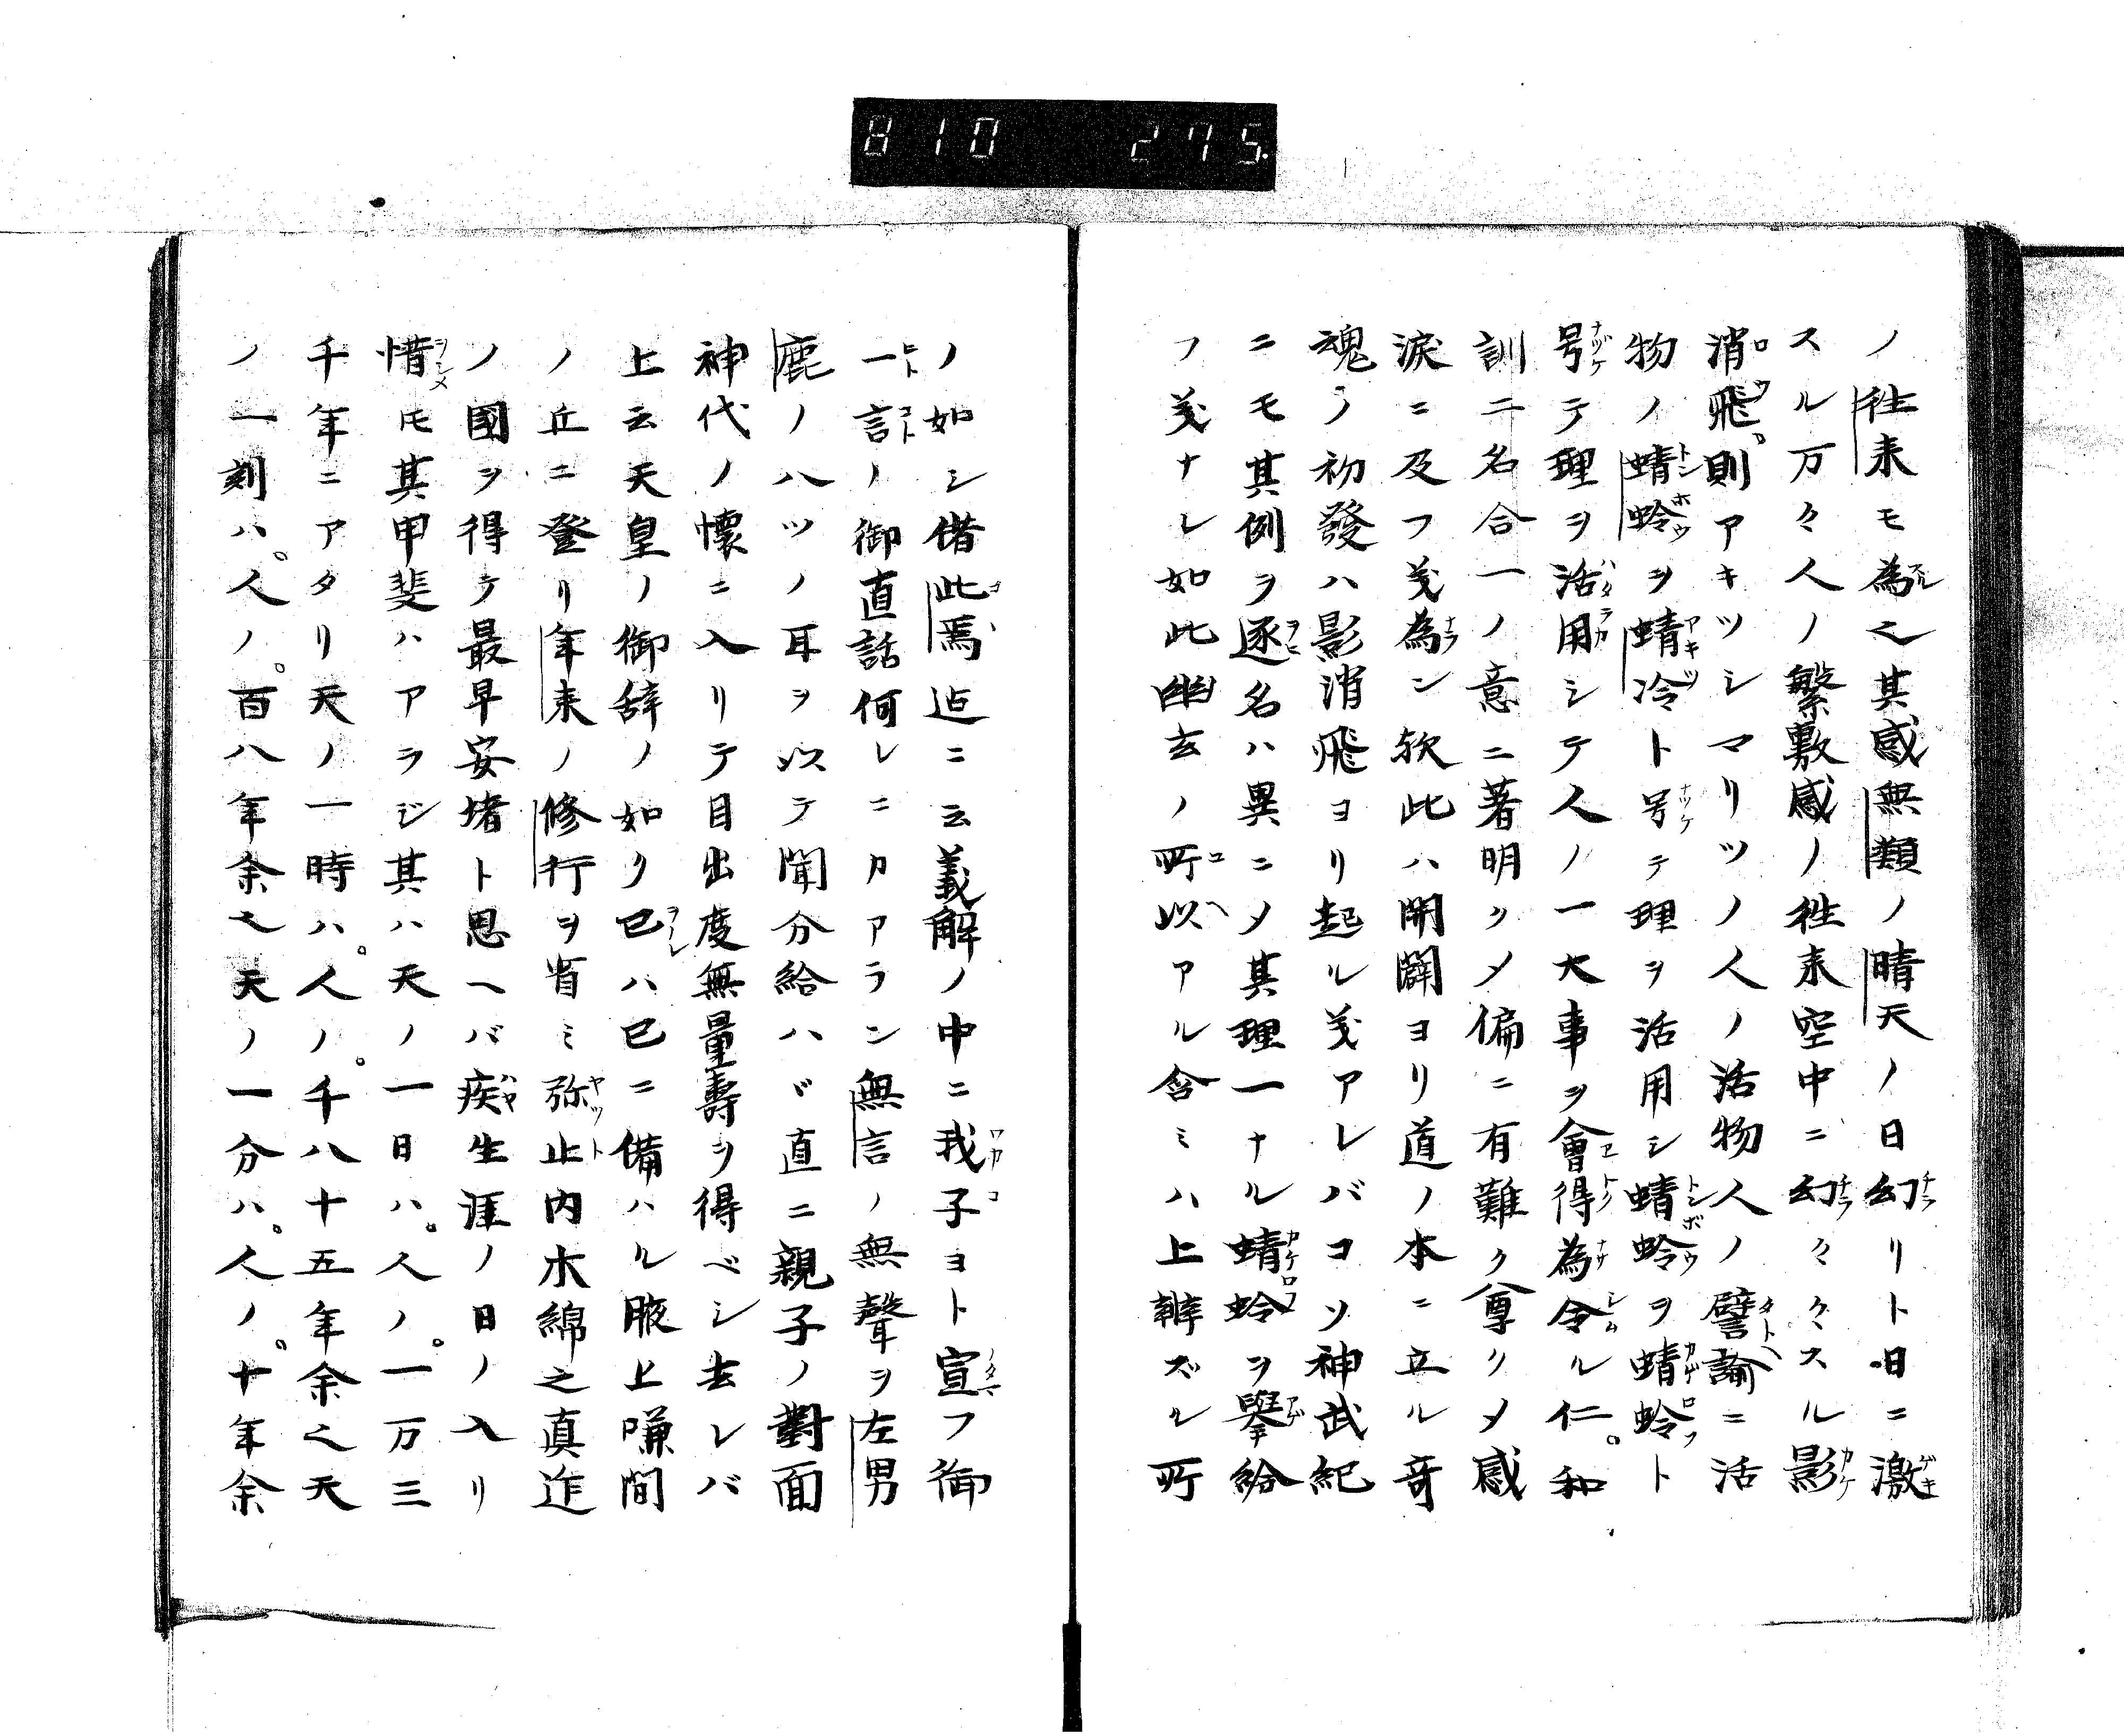 810 275.
ノ徃来モ為之其感無類ノ晴天ノ日幻リト日ニ激
スル万々人ノ繁數感ノ徃来空中ニ幻々々々スル影
消飛。則アキツシマリツノ人ノ活物人ノ譬諭ニ活
物ノ蜻蛉ヲ蜻冷ト号テ理ヲ活用シ蜻蛉ヲ蜻蛉ト
号テ理ヲ活用シテ人ノ一大事ヲ會得為令ル仁。和
訓二名合一ノ意ニ著明クメ偏ニ有難ク尊クメ感
涙ニ及フ美為ン欤此ハ開闢ヨリ道ノ本ニ立ル竒
魂ラノ初發ハ影消飛ヨリ起ル美アレバコソ神武紀
ニモ其例ヲ逐名ハ異ニメ其理一ナル蜻蛉ヲ擧給
フ美ナレ如此幽玄ノ所以アル含ミハ上辨ズル所
ノ如シ借此焉迠ニ云義解ノ中ニ我子ヨト宣フ御
一言ノ御直話何レニカアラン無言ノ無聲ヲ左男
鹿ノ八ツノ耳ヲ以テ聞分給ハヾ直ニ親子ノ對面
神代ノ懐ニ入リテ目出度無量壽ヲ得ベシ去レバ
上云天皇ノ御辞ノ如ク已ハ已ニ備ハル腋上嗛間
ノ丘ニ登リ年来ノ修行ヲ省ミ弥止内木綿之真迮
ノ國ヲ得テ最早安堵ト思ヘバ疾生涯ノ日ノ入リ
惜モ其甲斐ハアラジ其ハ天ノ一日ハ。人ノ。一万三
千年ニアタリ天ノ一時ハ。人ノ。千八十五年余之天
ノ一刻ハ。人ノ。百八年余之天ノ一分ハ。人ノ。十年余